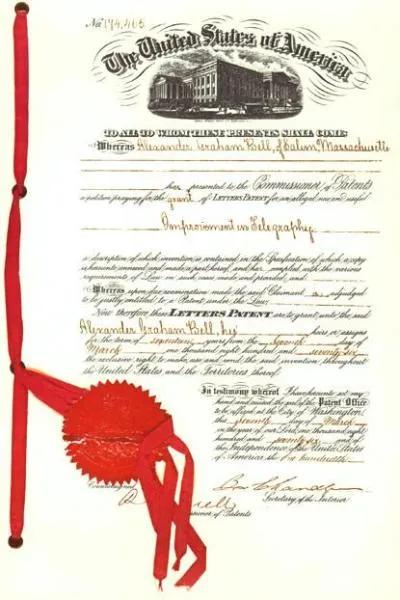 No. 174,465
The United States of America
TO ALL TO WHOM THESE PRESENTS SHALL COME:
Whereas Alexander Graham Bell, of Salem, Massachusetts
has presented to the Commissioner of Patents
a petition praying for the grant of LETTERS PATENT for an alleged new and useful
Improvement in Telegraphy
a description of which invention is contained in the Specification of which a copy
is hereunto annexed and made a part hereof, and has complied with the various
requirements of Law in such cases made and provided, and
Whereas upon due examination made the said Claimant is adjudged
to be justly entitled to a Patent under the Law.
Now therefore these LETTERS PATENT are to grant unto the said
Alexander Graham Bell, his heirs or assigns
for the term of seventeen years from the seventh day of
March one thousand eight hundred and seventy-six
the exclusive right to make, use and vend the said invention throughout
the United States and the Territories thereof.
In testimony whereof I have hereunto set my
hand and caused the seal of the Patent Office
to be affixed at the City of Washington
this seventh day of March
in the year of our Lord one thousand eight
hundred and seventy-six and of
the Independence of the United States
of America the one hundredth.
Countersigned
Secretary of the Interior
of Patents